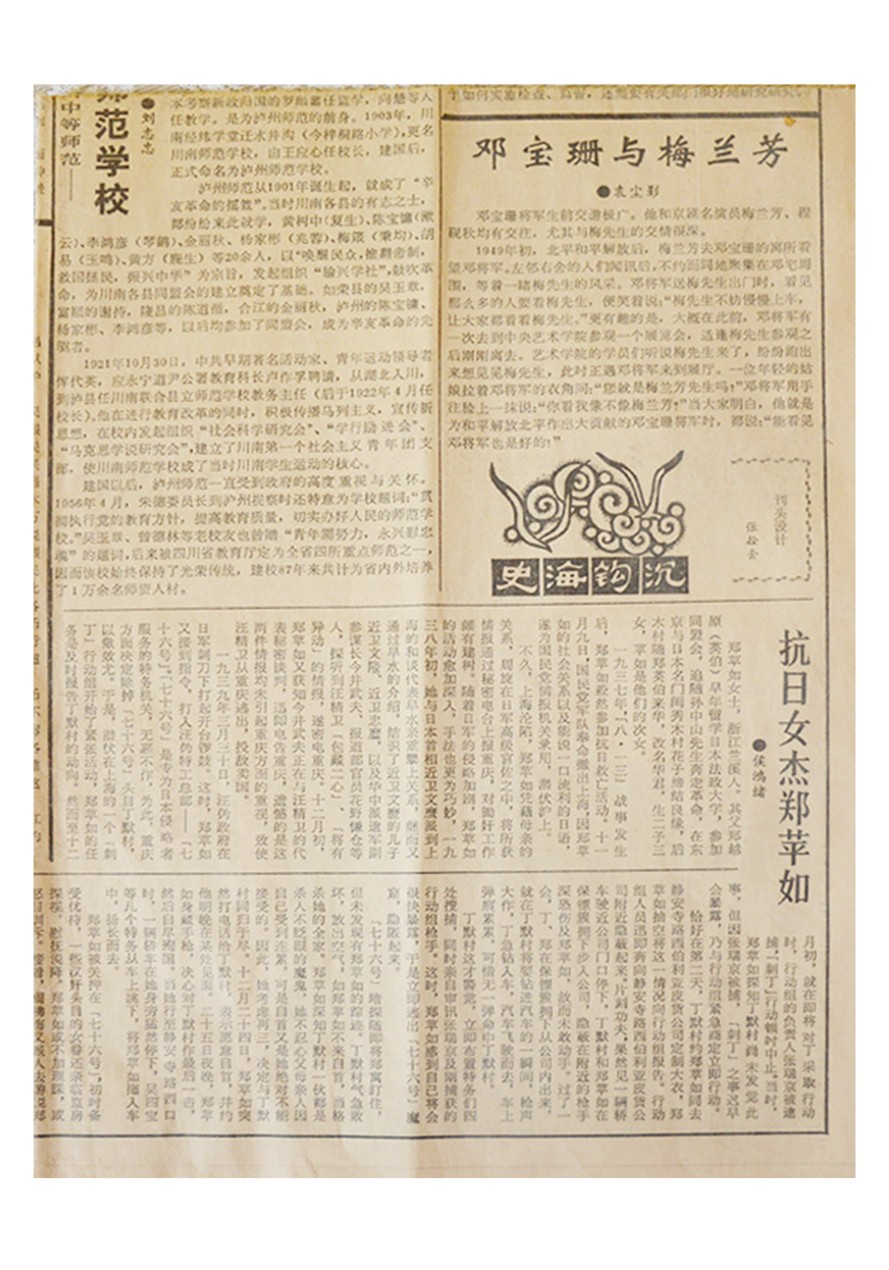 师范学校
中等师范——
●刘志忠
本考察新政归国的罗顺蕃任监学，向楚等人
任教学。是为泸州师范的前身。1903年，川
南经纬学堂迁水井沟（今梓桐路小学），更名
川南师范学校，由王应心任校长，建国后，
正式命名为泸州师范学校。
泸州师范从1901年诞生起，就成了“辛
亥革命的摇篮”。当时川南各县的有志之士，
都纷纷来此就学，黄树中（复生）、陈宝镛（漱
云）、李鸿彦（琴鹤）、金丽秋、杨家彬（兆蓉）、梅箴（秉均）、胡
易（玉鸣）、黄方（鹿生）等20余人，以“唤醒民众，推翻帝制，
救国拯民，振兴中华”为宗旨，发起组织“输兴学社”，鼓吹革
命，为川南各县同盟会的建立奠定了基础。如荣县的吴玉章，
富顺的谢持，隆昌的陈道循，合江的金丽秋，泸州的陈宝镛、
杨家彬、李鸿彦等，以后均参加了同盟会，成为辛亥革命的先
驱者。
1921年10月30日，中共早期著名活动家、青年运动领导者
恽代英，应永宁道尹公署教育科长卢作孚聘请，从湖北入川，
到泸县任川南联合县立师范学校教务主任（后于1922年4月任
校长）。他在进行教育改革的同时，积极传播马列主义，宣传新
思想，在校内发起组织“社会科学研究会”、“学行励进会”、
“马克思学说研究会”，建立了川南第一个社会主义青年团支
部，使川南师范学校成了当时川南学生运动的核心。
建国以后，泸州师范一直受到政府的高度重视与关怀。
1956年4月，朱德委员长到泸州视察时还特意为学校题词：“贯
彻执行党的教育方针，提高教育质量，切实办好人民的师范学
校。”吴玉章、曾德林等老校友也曾赠“青年需努力，永兴慰忠
魂”的题词，后来被四川省教育厅定为全省四所重点师范之一，
因而该校始终保持了光荣传统，建校87年来共计为省内外培养
了1万余名师资人材。
邓宝珊与梅兰芳
●袁尘影
邓宝珊将军生前交游极广。他和京剧名演员梅兰芳、程
砚秋均有交往，尤其与梅先生的交情很深。
1949年初，北平和平解放后，梅兰芳去邓宝珊的寓所看
望邓将军。左邻右舍的人们闻讯后，不约而同地聚集在邓宅周
围，等着一睹梅先生的风采。邓将军送梅先生出门时，看见
那么多的人要看梅先生，便笑着说：“梅先生不妨慢慢上车，
让大家都看看梅先生。”更有趣的是，大概在此前，邓将军有
一次去到中央艺术学院参观一个展览会，适逢梅先生参观之
后刚刚离去。艺术学院的学员们听说梅先生来了，纷纷跑出
来想见见梅先生，此时正遇邓将军来到展厅。一位年轻的姑
娘拉着邓将军的衣角问：“您就是梅兰芳先生吗？”邓将军用手
往脸上一抹说：“你看我像不像梅兰芳？”当大家明白，他就是
为和平解放北平作出大贡献的邓宝珊将军时，都说：“能看见
邓将军也是好的！”
史海钩沉
刊头设计
抗日女杰郑苹如
●侯鸿绪
郑苹如女士，浙江兰溪人。其父郑越
原（英伯）早年留学日本法政大学，参加
同盟会，追随孙中山先生奔走革命，在东
京与日本名门闺秀木村花子缔结良缘，后
木村随郑英伯来华，改名华君，生二子三
女，苹如是他们的次女。
一九三七年，“八·一三”战事发生
后，郑苹如毅然参加抗日救亡活动。十一
月九日，国民党军队奉命撤出上海，因郑苹
如的社会关系以及能说一口流利的日语，
遂为国民党情报机关录用，潜伏沪上。
不久，上海沦陷，郑苹如凭藉母亲的
关系，周旋在日军高级官佐之中，将所获
情报通过秘密电台上报重庆，对锄奸工作
颇有建树。随着日军的侵略加剧，郑苹如
的活动愈加深入，手法也更为巧妙，一九
三八年初，她与日本首相近卫文麿派到上
海的和谈代表早水亲重攀上关系，继而又
通过早水的介绍，结识了近卫文麿的儿子
近卫文隆、近卫忠麿，以及华中派遣军副
参谋长今井武夫、报道部官员花野慊仓等
人，探听到汪精卫“包藏二心”、“将有
异动”的情报，遂密电重庆。十二月初，
郑苹如又获知今井武夫正在与汪精卫的代
表秘密谈判，迅即电告重庆，遗憾的是这
两件情报均未引起重庆方面的重视，致使
汪精卫从重庆逃出，投敌卖国。
一九三九年三月三十日，汪伪政府在
日军刺刀下打起开台锣鼓。这时，郑苹如
又接到指令，打入汪伪特工总部——“七
十六号”。“七十六号”是专为日本侵略者
服务的特务机关，无恶不作，为此，重庆
方面决定除掉“七十六号”头目丁默村，
以儆效尤。于是，潜伏在上海的一个“刺
丁”行动组开始了紧张活动，郑苹如的任
务是及时报告丁默村的动向。然而至十二
月初，就在即将对丁采取行动
时，行动组的负责人张瑞京被逮
捕，“刺丁”行动顿时中止。当时，
郑苹如探知丁默村尚未发觉此
事，但因张瑞京被捕，“刺丁”之事迟早
会暴露，乃与行动组紧急商定立即行动。
恰好在第二天，丁默村约郑苹如同去
静安寺路西伯利亚皮货公司定制大衣，郑
苹如抽空将这一情况向行动组报告。行动
组人员迅即奔向静安寺路西伯利亚皮货公
司附近隐蔽起来。片刻功夫，果然见一辆轿
车驶近公司门口停下，丁默村和郑苹如在
保镖簇拥下步入公司，隐蔽在附近的枪手
深恐伤及郑苹如，故而未敢动手。过了一
会，丁、郑在保镖簇拥下从公司内出来，
就在丁默村将要钻进汽车的一瞬间，枪声
大作，丁急钻入车，汽车飞驶而去，车上
弹痕累累，可惜无一弹命中丁默村。
丁默村这才警觉，立即布置特务们四
处搜捕，同时亲自审讯张瑞京及刚捕获的
行动组枪手。这时，郑苹如感到自己将会
很快暴露，于是立即逃出“七十六号”魔
窟，隐匿起来。
“七十六号”暗探随即将郑寓盯住，
但未发现有郑苹如的踪迹。丁默村气急败
坏，放出空气，如郑苹如不来自首，当格
杀她的全家。郑苹如深知丁默村一伙都是
杀人不眨眼的魔鬼，她不忍心父母亲人因
自己受到连累，可是自首又是她绝对不能
接受的。因此，她考虑再三，决定与丁默
村同归于尽。十二月二十四日，郑苹如突
然打电话给丁默村，表示愿意自首，并约
他明晚在某处见面。二十五日夜晚，郑苹
如身藏手枪，决心对丁默村作最后一击，
然后自尽殉国。当她行至静安寺路西口
时，一辆轿车在她身旁猛然停下，吴四宝
等几个特务从车上跳下，将郑苹如拖入车
中，扬长而去。
郑苹如被关押在“七十六号”，初时备
受优待，一些汉奸头目的女眷还亲临监房
探视，慰抚说降，郑苹如或不加理睬，或